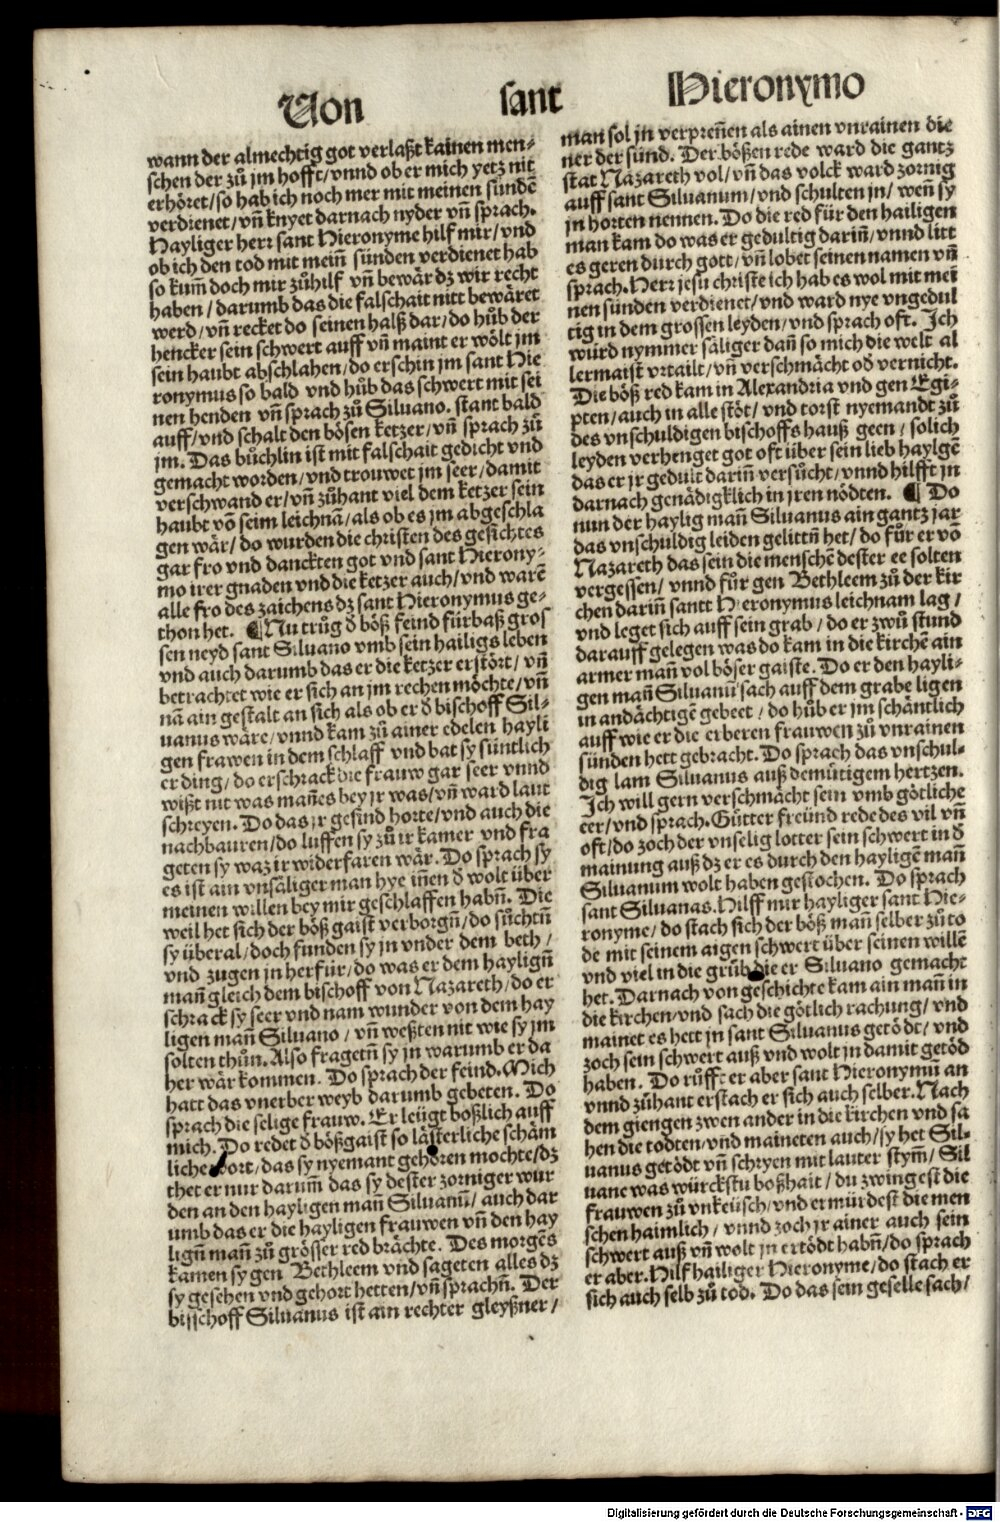 Von sant Hieronymo
wann der almechtig got verlaßt kainen men⸗
schen der zů jm hofft/vnnd ob er mich yetz nit
erhöret/so hab ich noch mer mit meinen sündē
verdienet/vn̄ knyet darnach nyder vn̄ sprach.
Hayliger herr sant Hieronyme hilf mir/vnd
ob ich den tod mit mein̄ sünden verdienet hab
so kum̄ doch mir zůhilf vn̄ bewär dz wir recht
haben/darumb das die falschait nitt bewäret
werd/vn̄ recket do seinen halß dar/do hůb der
hencker sein schwert auff vn̄ maint er wölt jm
sein haubt abschlahen/do erschin jm sant Hie
ronymus so bald vnd hůb das schwert mit sei
nen henden vn̄ sprach zů Siluano. stant bald
auff/vnd schalt den bösen ketzer/vn̄ sprach zů
jm. Das bůchlin ist mit falschait gedicht vnd
gemacht worden/vnd trouwet jm seer/damit
verschwand er/vn̄ zůhant viel dem ketzer sein
haubt vō seim leichnā/als ob es jm abgeschla
gen wär/do wurden die christen des gesichtes
gar fro vnd danckten got vnd sant Hierony⸗
mo irer gnaden vnd die ketzer auch/vnd warē
alle fro des zaichens dz sant Hieronymus ge⸗
thon het. ¶Nu trůg d̄ böß feind fürbaß gros
sen neyd sant Siluano vmb sein hailigs leben
vnd auch darumb das er die ketzer erstört/vn̄
betrachtet wie er sich an jm rechen möchte/vn̄
nā ain gestalt an sich als ob er d̄ bischoff Sil⸗
uanus wäre/vnnd kam zů ainer edelen hayli
gen frawen in dem schlaff vnd bat sy süntlich
er ding/do erschrack die frauw gar seer vnnd
wißt nit was man̄es bey jr was/vn̄ ward laut
schreyen. Do das jr gesind horte/vnd auch die
nachbauren/do luffen sy zů ir kamer vnd fra
geten sy waz ir widerfaren wär. Do sprach sy
es ist ain vnsäliger man hye in̄en d̄ wolt über
meinen willen bey mir geschlaffen habn̄. Die
weil het sich der böß gaist verborgn̄/do sůchtn̄
sy überal/doch funden sy jn vnder dem beth/
vnd zugen jn herfür/do was er dem haylign̄
man̄ gleich dem bischoff von Nazareth/do er
schrack sy seer vnd nam wunder von dem hay
ligen man̄ Siluano/vn̄ weßten nit wie sy jm
solten thůn. Also fragetn̄ sy jn warumb er da
her wär kommen. Do sprach der feind. Mich
hatt das vnerber weyb darumb gebeten. Do
sprach die selige frauw. Er leügt boßlich auff
mich. Do redet d̄ bößgaist so lästerliche schäm
liche wort/das sy nyemant gehören mochte/dz
thet er nur darum̄ das sy dester zorniger wur
den an den hayligen man̄ Siluanū/auch dar
umb das er die hayligen frauwen vn̄ den hay
lign̄ man̄ zů grösser red brächte. Des morgēs
kamen sy gen Bethleem vnd sageten alles dz
sy gesehen vnd gehort hetten/vn̄ sprachn̄. Der
bisschoff Siluanus ist ain rechter gleyßner/
man sol jn verpren̄en als ainen vnrainen die
ner der sünd. Der bößen rede ward die gantz
stat Nazareth vol/vn̄ das volck ward zornig
auff sant Siluanum/vnd schulten jn/wen̄ sy
jn horten nennen. Do die red für den hailigen
man kam do was er gedultig darin̄/vnnd litt
es geren durch gott/vn̄ lobet seinen namen vn̄
sprach. Herr jesu christe ich hab es wol mit mei
nen sünden verdienet/vnd ward nye vngedul
tig in dem grossen leyden/vnd sprach oft. Ich
würd nymmer säliger dan̄ so mich die welt al
lermaist vrtailt/vn̄ verschmächt od̄ vernicht.
Die böß red kam in Alexandria vnd gen Egi⸗
pten/auch in alle stöt/vnd torst nyemandt zů
des vnschuldigen bischoffs hauß geen/solich
leyden verhenget got oft über sein lieb haylgē
das er jr gedult darin̄ versůcht/vnnd hilfft jn
darnach genädigklich in jren nödten. ¶ Do
nun der haylig man̄ Siluanus ain gantz jar
das vnschuldig leiden gelittn̄ het/do für er vō
Nazareth das sein die menschē dester ee solten
vergessen/vnnd für gen Bethleem zů der kir
chen darin̄ santt Hieronymus leichnam lag/
vnd leget sich auff sein grab/do er zwů stund
darauff gelegen was do kam in die kirchē ain
armer man̄ vol böser gaiste. Do er den hayli⸗
gen man̄ Siluanū sach auff dem grabe ligen
in andächtigē gebeet/do hůb er jm schäntlich
auff wie er die erberen frauwen zů vnrainen
sünden hett gebracht. Do sprach das vnschul⸗
dig lam Siluanus auß demütigem hertzen.
Ich will gern verschmächt sein vmb götliche
eer/vnd sprach. Gütter freünd rede des vil vn̄
oft/do zoch der vnselig lotter sein schwert in d̄
mainung auß dz er es durch den hayligē man̄
Siluanum wolt haben gestochen. Do sprach
sant Siluanas. Hilff mir hayliger sant Hie⸗
ronyme/do stach sich der böß man̄ selber zů to
de mit seinem aigen schwert über seinen willē
vnd viel in die grůb die er Siluano gemacht
het. Darnach von geschichte kam ain man̄ in
die kirchen/vnd sach die götlich rachung/vnd
mainet es hett jn sant Siluanus getödt/vnd
zoch sein schwert auß vnd wolt jn damit getöd
haben. Do růfft er aber sant Hieronymū an
vnnd zůhant erstach er sich auch selber. Nach
dem giengen zwen ander in die kirchen vnd sa
hen die todten/vnd maineten auch/sy het Sil⸗
uanus getödt vn̄ schryen mit lauter stym̄/Sil
uane was würckstu boßhait/du zwingest die
frauwen zů vnkeüsch/vnd ermürdest die men
schen haimlich/vnnd zoch jr ainer auch sein
schwert auß vn̄ wolt jn ertödt habn̄/do sprach
er aber. Hilf hailiger Hieronyme/do stach er
sich auch selb zů tod. Do das sein geselle sach/
Digitalisierung gefördert durch die Deutsche Forschungsgemeinschaft - DFG